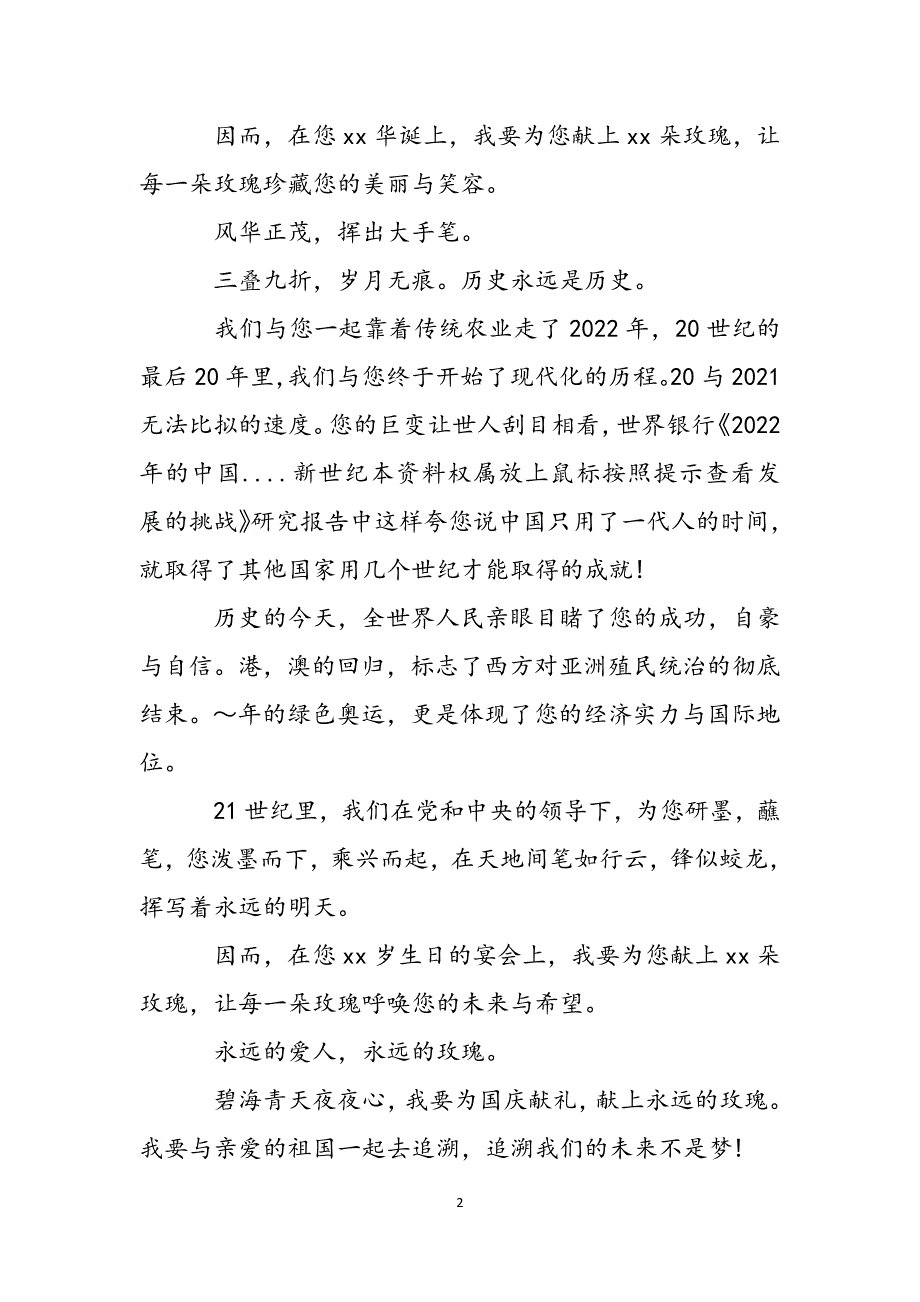 因而，在您 xx 华诞上，我要为您献上 xx 朵玫瑰，让
每一朵玫瑰珍藏您的美丽与笑容。
风华正茂，挥出大手笔。
三叠九折，岁月无痕。历史永远是历史。
我们与您一起靠着传统农业走了 2022 年，20 世纪的
最后 20 年里，我们与您终于开始了现代化的历程。20 与 2021
无法比拟的速度。您的巨变让世人刮目相看，世界银行《2022
年的中国....新世纪本资料权属放上鼠标按照提示查看发
展的挑战》研究报告中这样夸您说中国只用了一代人的时间，
就取得了其他国家用几个世纪才能取得的成就！
历史的今天，全世界人民亲眼目睹了您的成功，自豪
与自信。港，澳的回归，标志了西方对亚洲殖民统治的彻底
结束。～年的绿色奥运，更是体现了您的经济实力与国际地
位。
21 世纪里，我们在党和中央的领导下，为您研墨，蘸
笔，您泼墨而下，乘兴而起，在天地间笔如行云，锋似蛟龙，
挥写着永远的明天。
因而，在您 xx 岁生日的宴会上，我要为您献上 xx 朵
玫瑰，让每一朵玫瑰呼唤您的未来与希望。
永远的爱人，永远的玫瑰。
碧海青天夜夜心，我要为国庆献礼，献上永远的玫瑰。
我要与亲爱的祖国一起去追溯，追溯我们的未来不是梦！
2